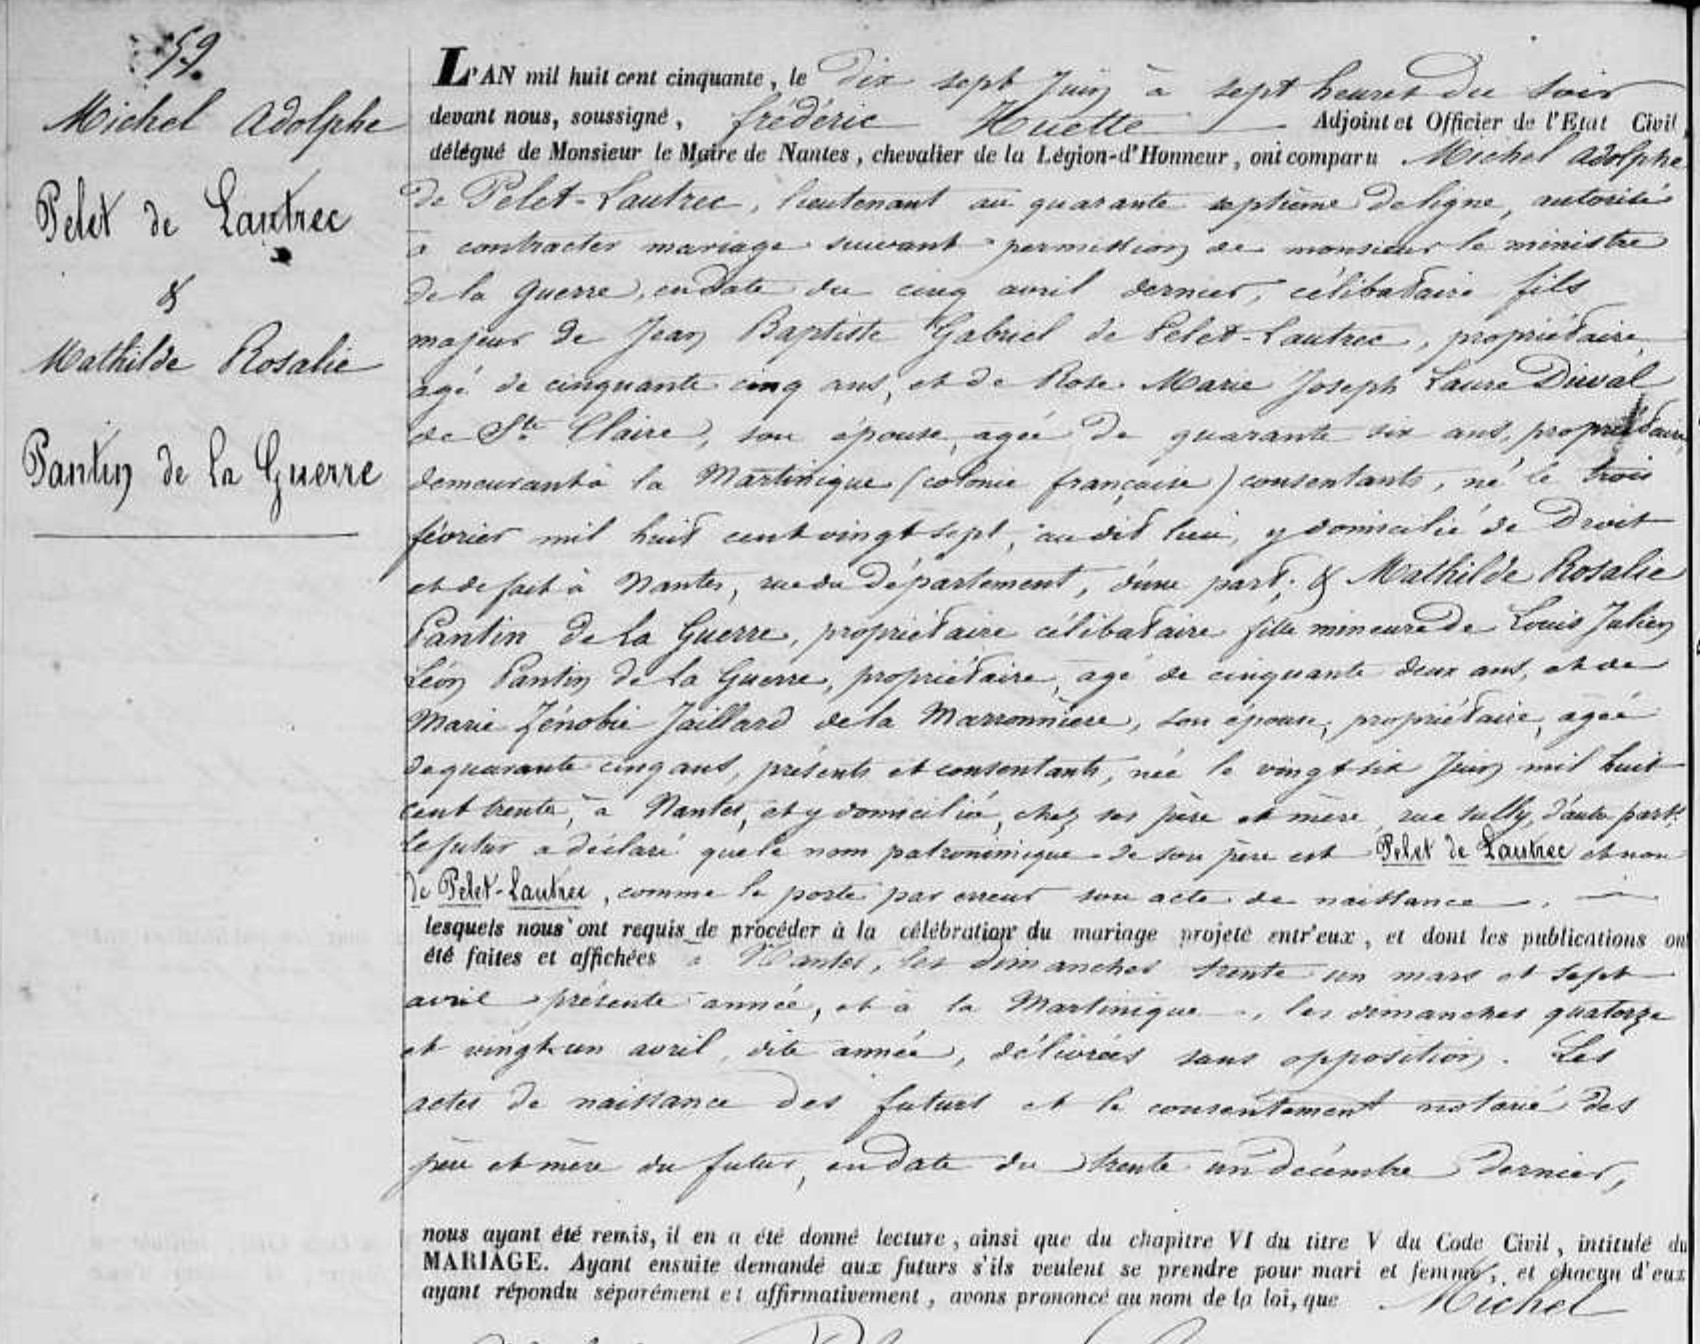 59.
Michel Adolphe
Pelet de Lautrec
&
Mathilde Rosalie
Pantin de la Guerre
L'AN mil huit cent cinquante, le dix sept Juin à sept heures du soir
devant nous, soussigné, frédéric Huette Adjoint et Officier de l'Etat Civil,
délégué de Monsieur le Maire de Nantes, chevalier de la Légion-d'Honneur, ont comparu Michel Adolphe
de Pelet-Lautrec, lieutenant au quarante septième de ligne, autorisé
à contracter mariage suivant permission de monsieur le ministre
de la Guerre, en date du cinq avril dernier, célibataire fils
majeur de Jean Baptiste Gabriel de Pelet-Lautrec, propriétaire,
agé de cinquante cinq ans, et de Rose Marie Joseph Laure Duval
de Ste Claire, son épouse, agée de quarante six ans, propriétaire,
demeurant à la Martinique (colonie française) consentants, né le trois
février mil huit cent vingt sept, au dit lieu, y domicilié de Droit
et de fait à Nantes, rue du Département, d'une part; & Mathilde Rosalie
Pantin de la Guerre, propriétaire célibataire fille mineure de Louis Julien
Léon Pantin de la Guerre, propriétaire, agé de cinquante deux ans, et de
Marie Zénobie Jaillard de la Marronnière, son épouse, propriétaire, agée
de quarante cinq ans, présents et consentants, née le vingt six Juin mil huit
cent trente, à Nantes, et y domiciliée, chez ses père et mère, rue Sully, d'autre part.
Le futur a déclaré que le nom patronimique de son père est Pelet de Lautrec et non
de Pelet-Lautrec, comme le porte par erreur son acte de naissance.
lesquels nous ont requis de procéder à la célébration du mariage projeté entr'eux, et dont les publications ont
été faites et affichées à Nantes, les dimanches trente un mars et sept
avril présente année, et à la Martinique, les dimanches quatorze
et vingt-un avril, dite année, délivrées sans opposition. Les
actes de naissance des futurs et le consentement notarié des
père et mère du futur, en date du trente un décembre dernier,
nous ayant été remis, il en a été donné lecture, ainsi que du chapitre VI du titre V du Code Civil, intitulé du
MARIAGE. Ayant ensuite demandé aux futurs s'ils veulent se prendre pour mari et femme, et chacun d'eux
ayant répondu séparément et affirmativement, avons prononcé au nom de la loi, que Michel